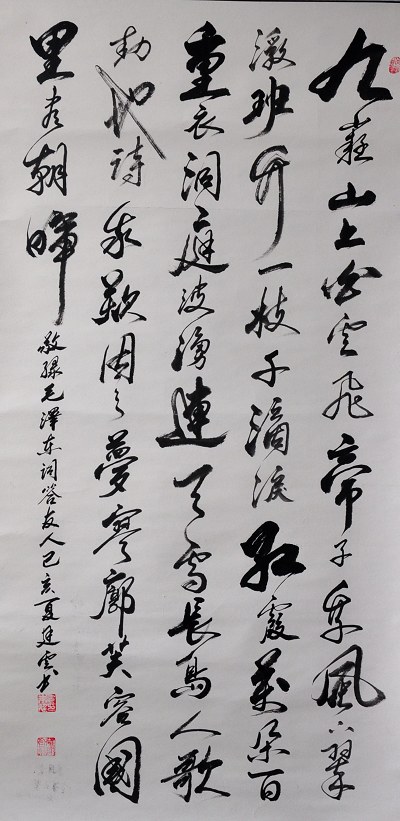 九嶷山上白雲飛帝子乘風下翠
微班竹一枝千滴淚紅霞萬朵百
重衣洞庭波湧連天雪長島人歌
動地詩我欲因之夢寥廓芙容國
里尽朝暉
敬録毛澤东词答友人己亥夏廷雲书